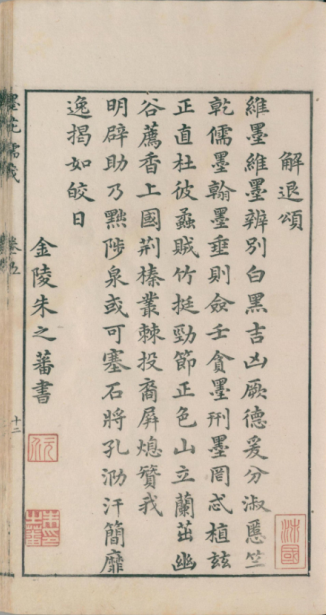 解退頌
維墨維墨辨別白黑吉凶厥德爰分淑慝竺
乾儒墨翰墨垂則僉壬貪墨刑墨罔忒植茲
正直杜彼蟊賊竹挺勁節正色山立蘭茁幽
谷薦香上國荆榛叢棘投裔屏熄贊我
明辟助乃黜陟泉或可塞石將孔泐汗簡靡
逸揭如皎日
金陵朱之蕃書
墨苑
卷五
十二